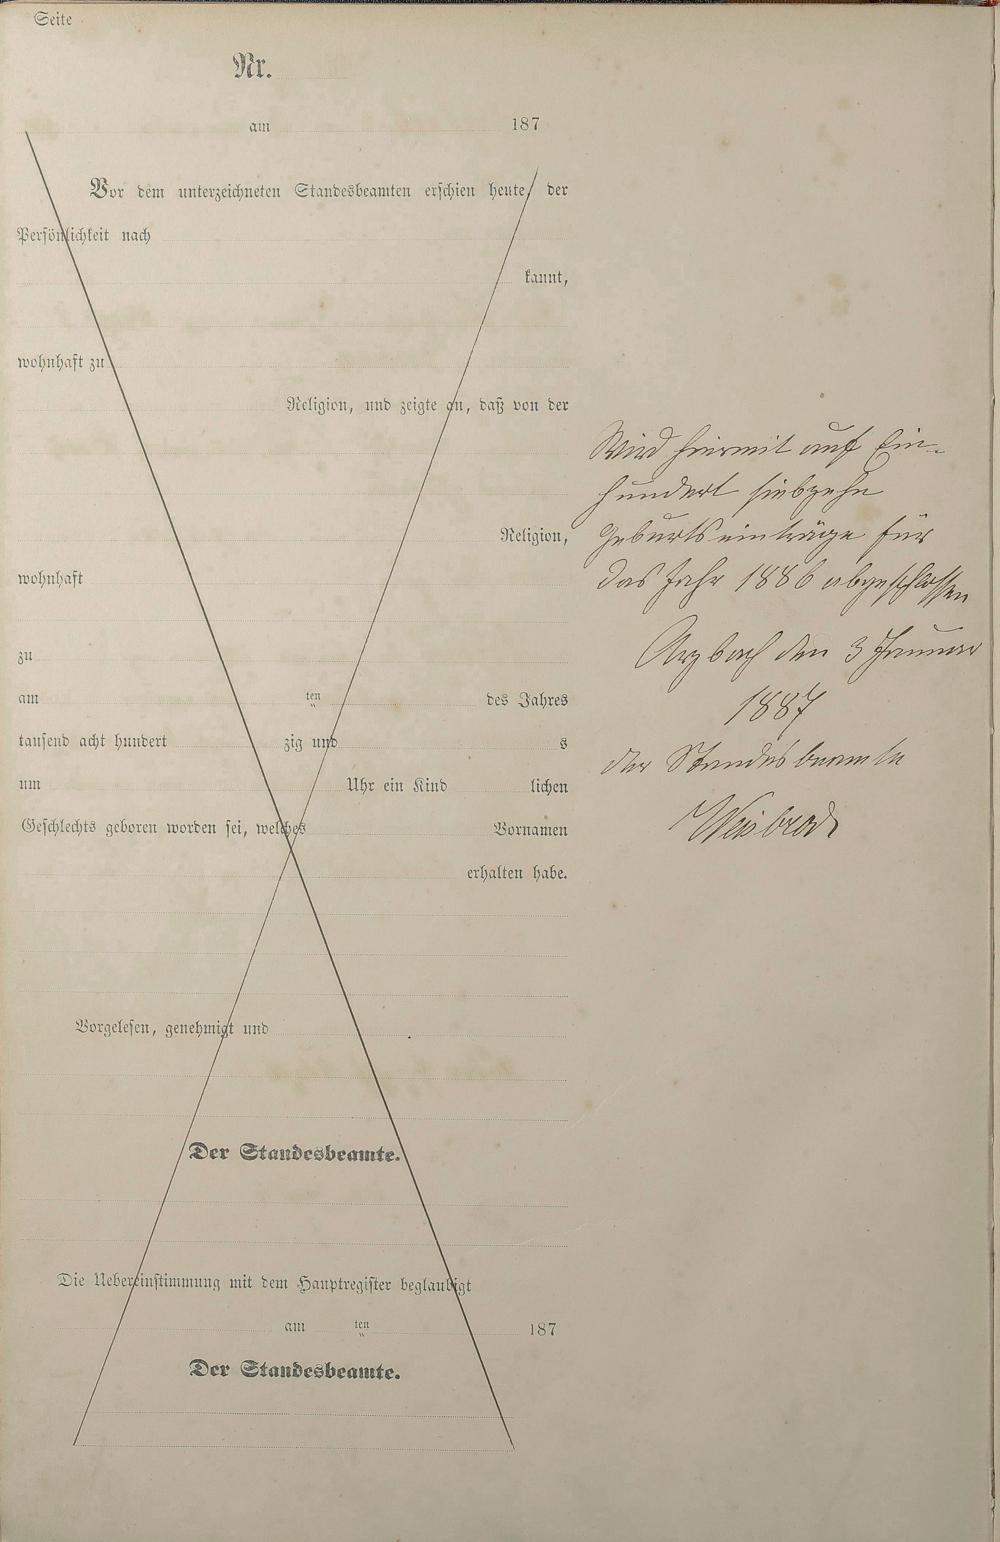 Seite
Nr.
am 187
Vor dem unterzeichneten Standesbeamten erschien heute, der
Persönlichkeit nach
kannt,
wohnhaft zu
Religion, und zeigte an, daß von der
Religion,
wohnhaft
zu
am ten des Jahres
tausend acht hundert zig und s
um Uhr ein Kind lichen
Geschlechts geboren worden sei, welches Vornamen
erhalten habe.
Vorgelesen, genehmigt und
Der Standesbeamte.
Die Uebereinstimmung mit dem Hauptregister beglaubigt
am ten 187
Der Standesbeamte.
Wird hiermit auf Ein-
hundert siebzehn
Geburtseinträge für
das Jahr 1886 abgeschlossen
Arzbach den 3 Januar
1887
der Standesbeamte
Weisbrod